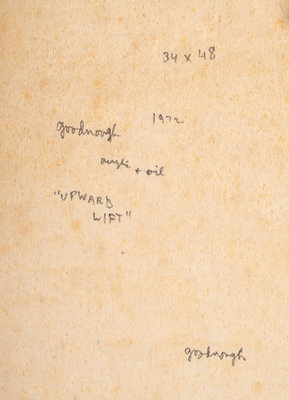 34 x 48
goodnough 1972
acrylic + oil
"UPWARD
LIFT"
goodnough